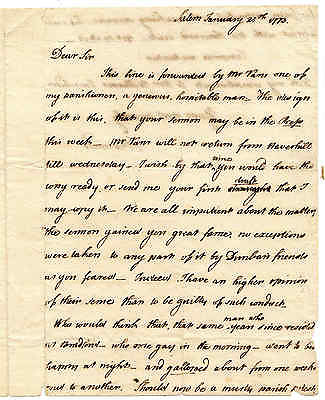 Salem January 20th 1773.
Dear Sir
This line is forwarded by Mr Vans one of
my parishioners, a generous, hospitable man. The design
of it is this, that your sermon may be in the Press
this week. Mr Vans will not return from Haverhill
till wednesday. I wish by that time you would have the
copy ready, or send me your first that I
may copy it. We are all impatient about the matter
the sermon gained you great fame. no exceptions
were taken to any part of it by friends
as you feared. Indeed I have an higher opinion
of their sense than to be guilty of such conduct.
Who would think that, that same man who
year since resided
at who one day in the morning went to be
at night and galloped about from one week
end to another. Should now be a musty parish